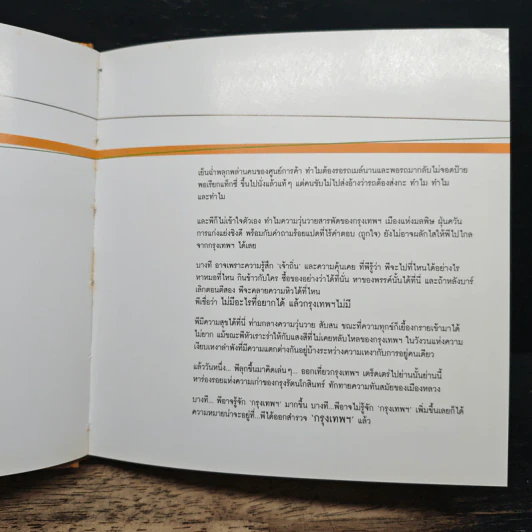 เย็นฉ่ำพลุกพล่านคนของศูนย์การค้า ทำไมต้องรอรถเมล์นานและพอรถมากลับไม่จอดป้าย
พอเรียกแท็กซี่ ขึ้นไปนั่งแล้วแท้ๆ แต่คนขับไม่ไปส่งอ้างว่ารถต้องส่งกะ ทำไม ทำไม
และทำไม
และพี่ก็ไม่เข้าใจตัวเอง ทำไมความวุ่นวายสารพัดของกรุงเทพฯ เมืองแห่งมลพิษ ฝุ่นควัน
การแก่งแย่งชิงดี พร้อมกับคำถามร้อยแปดที่ไร้คำตอบ (ถูกใจ) ยังไม่อาจผลักไสให้พี่ไปไกล
จากกรุงเทพฯ ได้เลย
บางที อาจเพราะความรู้สึก 'เจ้าถิ่น' และความคุ้นเคย ที่พี่รู้ว่า พี่จะไปที่ไหนได้อย่างไร
หาหมอที่ไหน กินข้าวกับใคร ซื้อของอย่างว่าได้ที่นั่น หาของพรรค์นั้นได้ที่นี่ และถ้าหลังบาร์
เลิกตอนตีสอง พี่จะคลายความหิวได้ที่ไหน
พี่เชื่อว่า ไม่มีอะไรที่อยากได้ แล้วกรุงเทพฯไม่มี
พี่มีความสุขได้ที่นี่ ท่ามกลางความวุ่นวาย สับสน ขณะที่ความทุกข์ก็เยื้องกรายเข้ามาได้
ไม่ยาก แม้ขณะพี่หัวเราะร่าให้กับแสงสีที่ไม่เคยหลับใหลของกรุงเทพฯ ในวังวนแห่งความ
เงียบเหงาลำพังที่มีความแตกต่างกันอยู่บ้างระหว่างความเหงากับการอยู่คนเดียว
แล้ววันหนึ่ง... พี่ลุกขึ้นมาคิดเล่นๆ... ออกเที่ยวกรุงเทพฯ เตร็ดเตร่ไปย่านนั้นย่านนี้
หาร่องรอยแห่งความเก่าของกรุงรัตนโกสินทร์ ทักทายความทันสมัยของเมืองหลวง
บางที... พี่อาจรู้จัก 'กรุงเทพฯ' มากขึ้น บางที...พี่อาจไม่รู้จัก 'กรุงเทพฯ' เพิ่มขึ้นเลยก็ได้
ความหมายน่าจะอยู่ที่...พี่ได้ออกสำรวจ 'กรุงเทพฯ' แล้ว